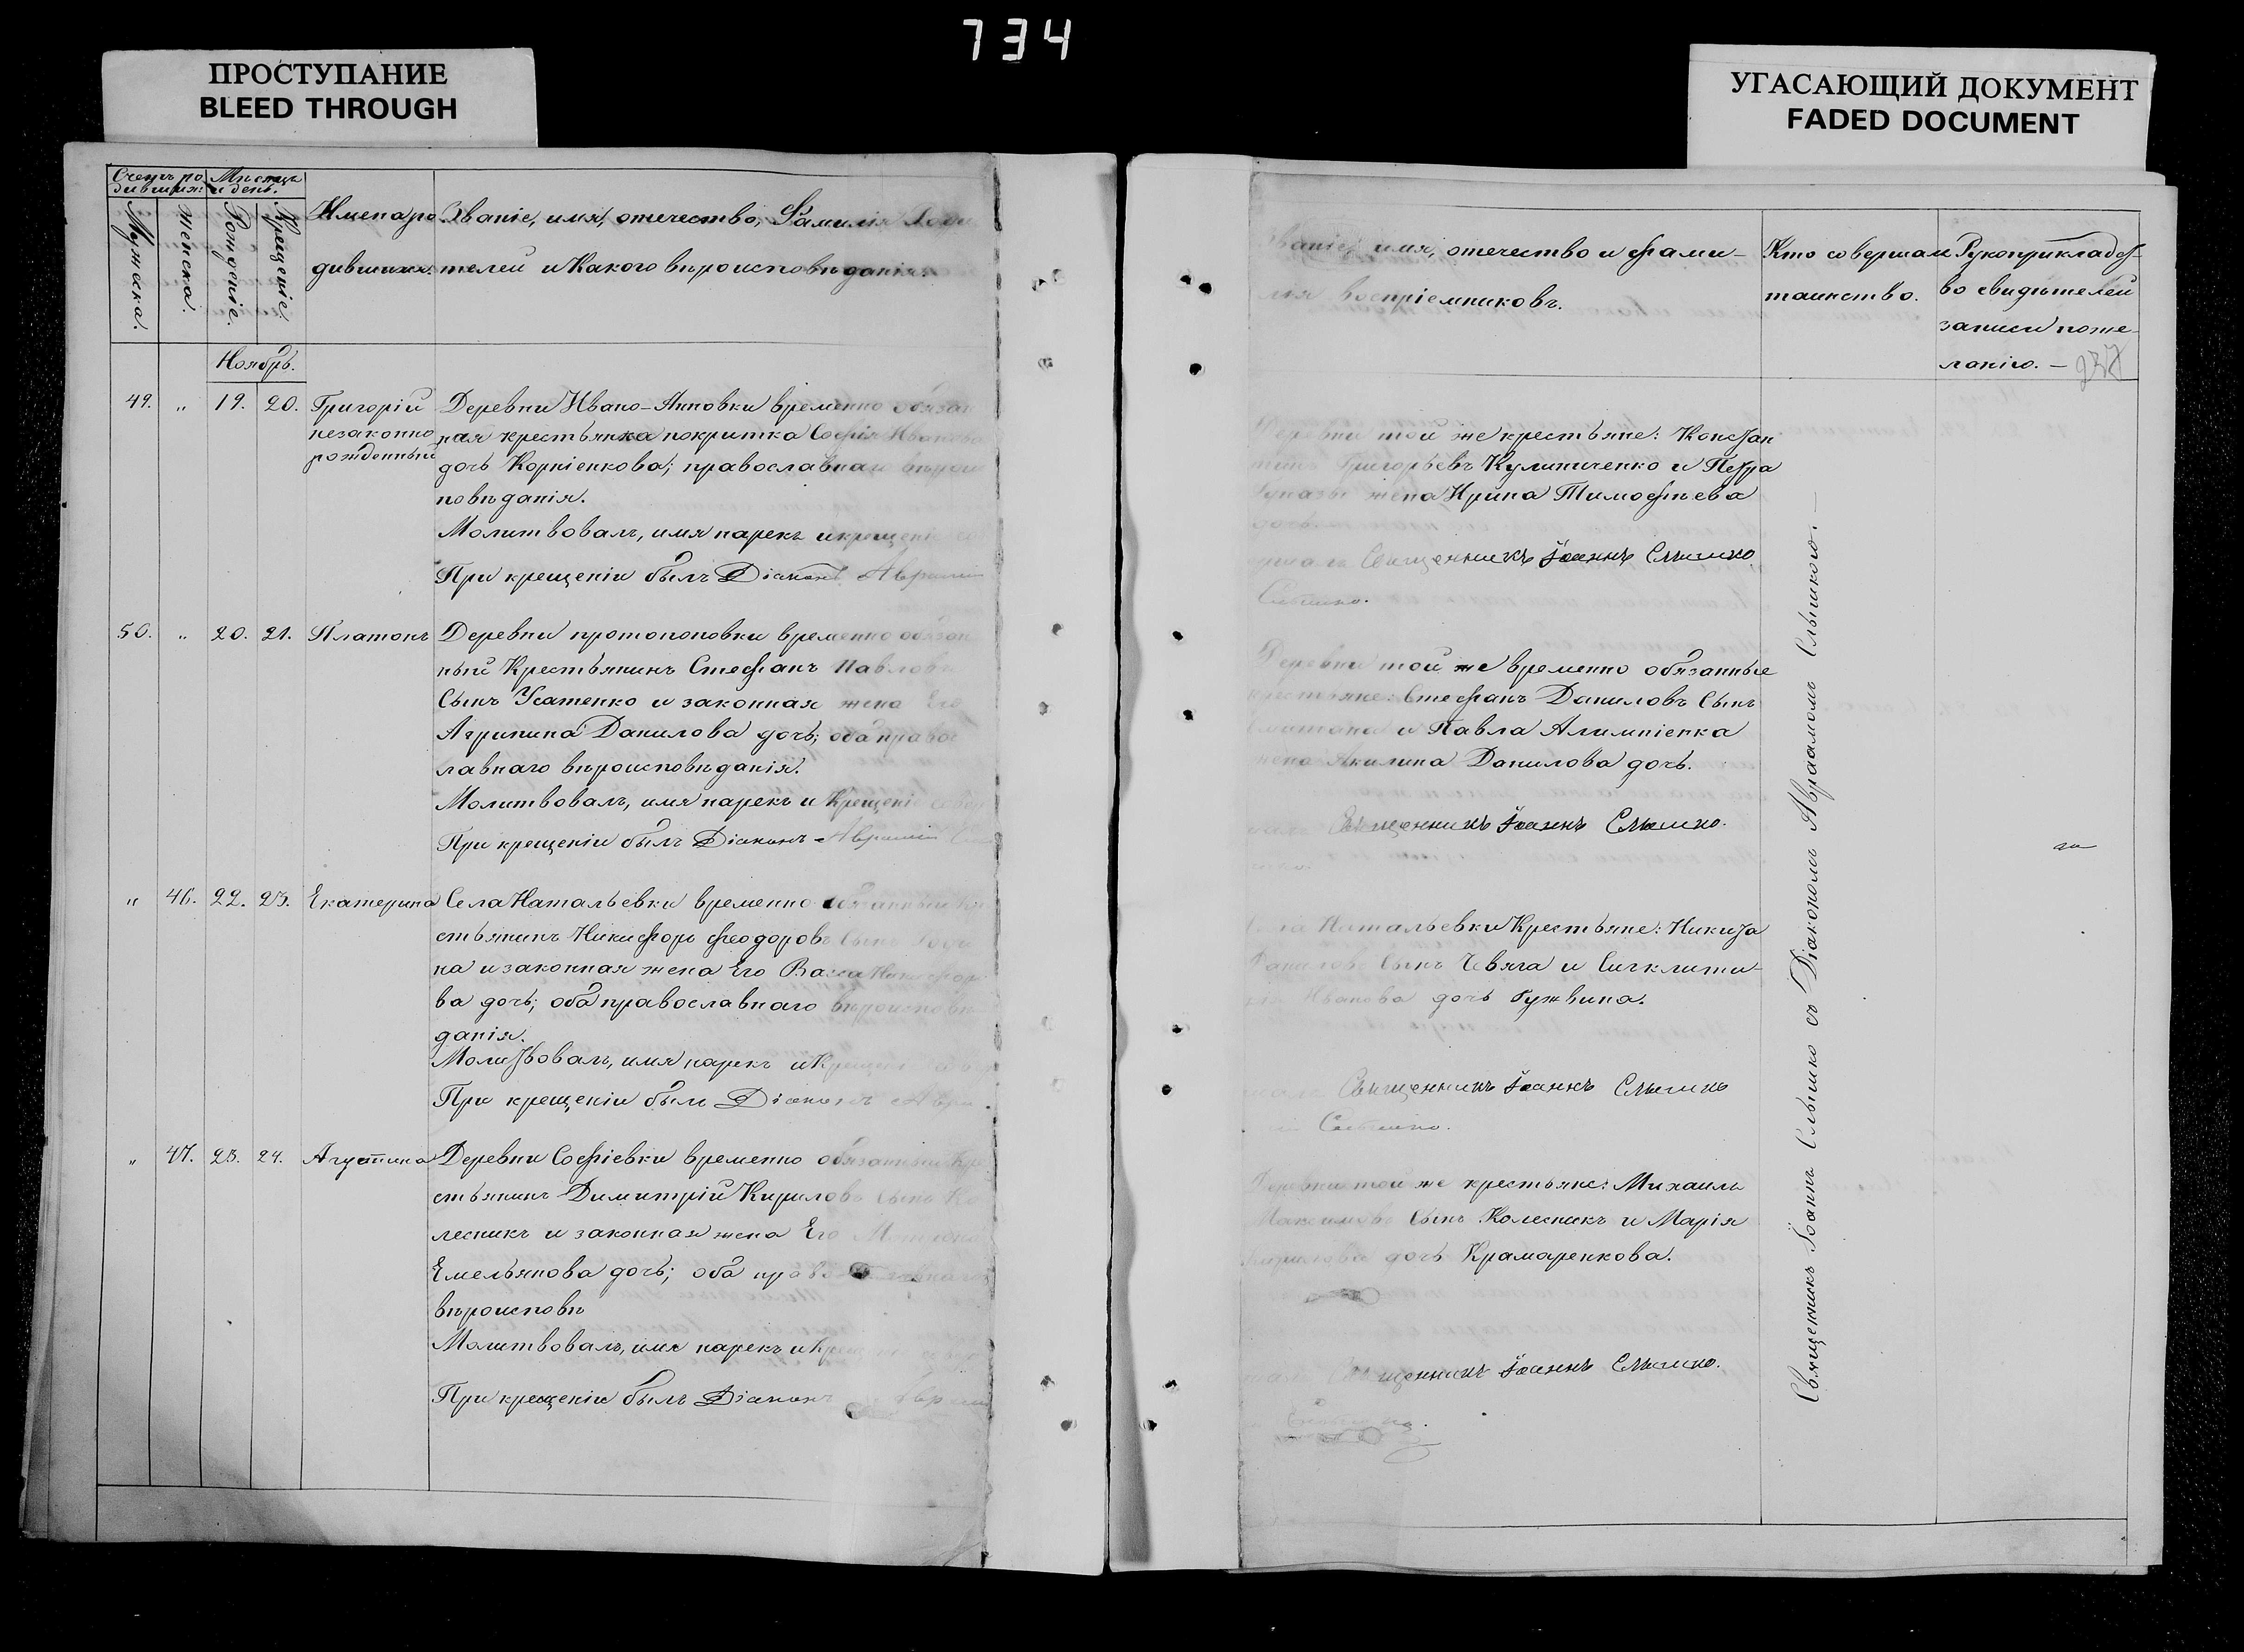 734
ПРОСТУПАНИЕ
BLEED THROUGH
УГАСАЮЩИЙ ДОКУМЕНТ
FADED DOCUMENT
Счетъ ро
дившихъ:
Мѣсяцъ
и день.
Мужеска.
женска.
Рожденіе.
Крещеніе.
Имена ро
дившихъ.
Званіе, имя, отечество, Фамилія Роди
телей и Какого вѣроисповѣданія.
Ноябрь.
49. " 19. 20. Григорій
незаконно
рожденный
Деревни Ивано-Анновки временно обязан
ная крестьянка покритка Софія Иванова
дочь Корніенкова; православнаго вѣроис
повѣданія.
Молитвовалъ, имя нарекъ и крещеніе
При крещеніи былъ Діаконъ Аврамій
50. " 20. 21. Платонъ
Деревни протопоповки временно обязан
ный Крестьянинъ Стефанъ Павловъ
Сынъ Усатенко и законная жена Его
Агрипина Данилова дочь; оба правос
лавнаго вѣроисповѣданія.
Молитвовалъ, имя нарекъ и Крещеніе совер
При крещеніи былъ Діаконъ Аврамій
" 46. 22. 23. Екатерина
Села Натальевки временно обязанный Кре
стьянинъ Никифоръ Феодоровъ Сынъ
на и законная жена Его
ва дочь; оба православнаго вѣроисповѣ
данія.
Молитвовалъ, имя нарекъ и Крещеніе
При крещеніи былъ Діаконъ Авра
" 47. 23. 24. Агустина
Деревни Софіевки временно обязанный Кре
стьянинъ Димитрій Кириловъ Сынъ Ко
лесникъ и законная жена Его
Емельянова дочь; оба православнаго
вѣроисповѣ
Молитвовалъ, имя нарекъ и Крещ
При крещеніи былъ Діаконъ Аврам
Званіе, имя, отечество и фами-
лія воспріемниковъ.
Кто совершалъ
таинство.
Рукоприкладст-
во свидѣтелей
записи поже-
ланію. —
237
Деревни той же крестьяне: Констан
тинъ Григорьевъ Кулиниченко и Петра
жена Ирина Тимофѣева
дочь
Священникъ Іоаннъ Слышко.
Слышко.
Деревни той же временно обязанные
крестьяне: Стефанъ Даниловъ Сынъ
и Павла Алимпіенка
жена Акилина Данилова дочь.
Священникъ Іоаннъ Слышко.
Села Натальевки Крестьяне: Никита
Даниловъ Сынъ Чевяга и Сигклити-
Иванова дочь Гужвина.
Священникъ Іоаннъ Слышко
Слышко.
Деревни той же крестьяне: Михаилъ
Максимовъ Сынъ Колесникъ и Марія
дочь Крамаренкова.
Священникъ Іоаннъ Слышко.
Священникъ Іоаннъ Слышко съ Діакономъ Авраамомъ Слышкого.—